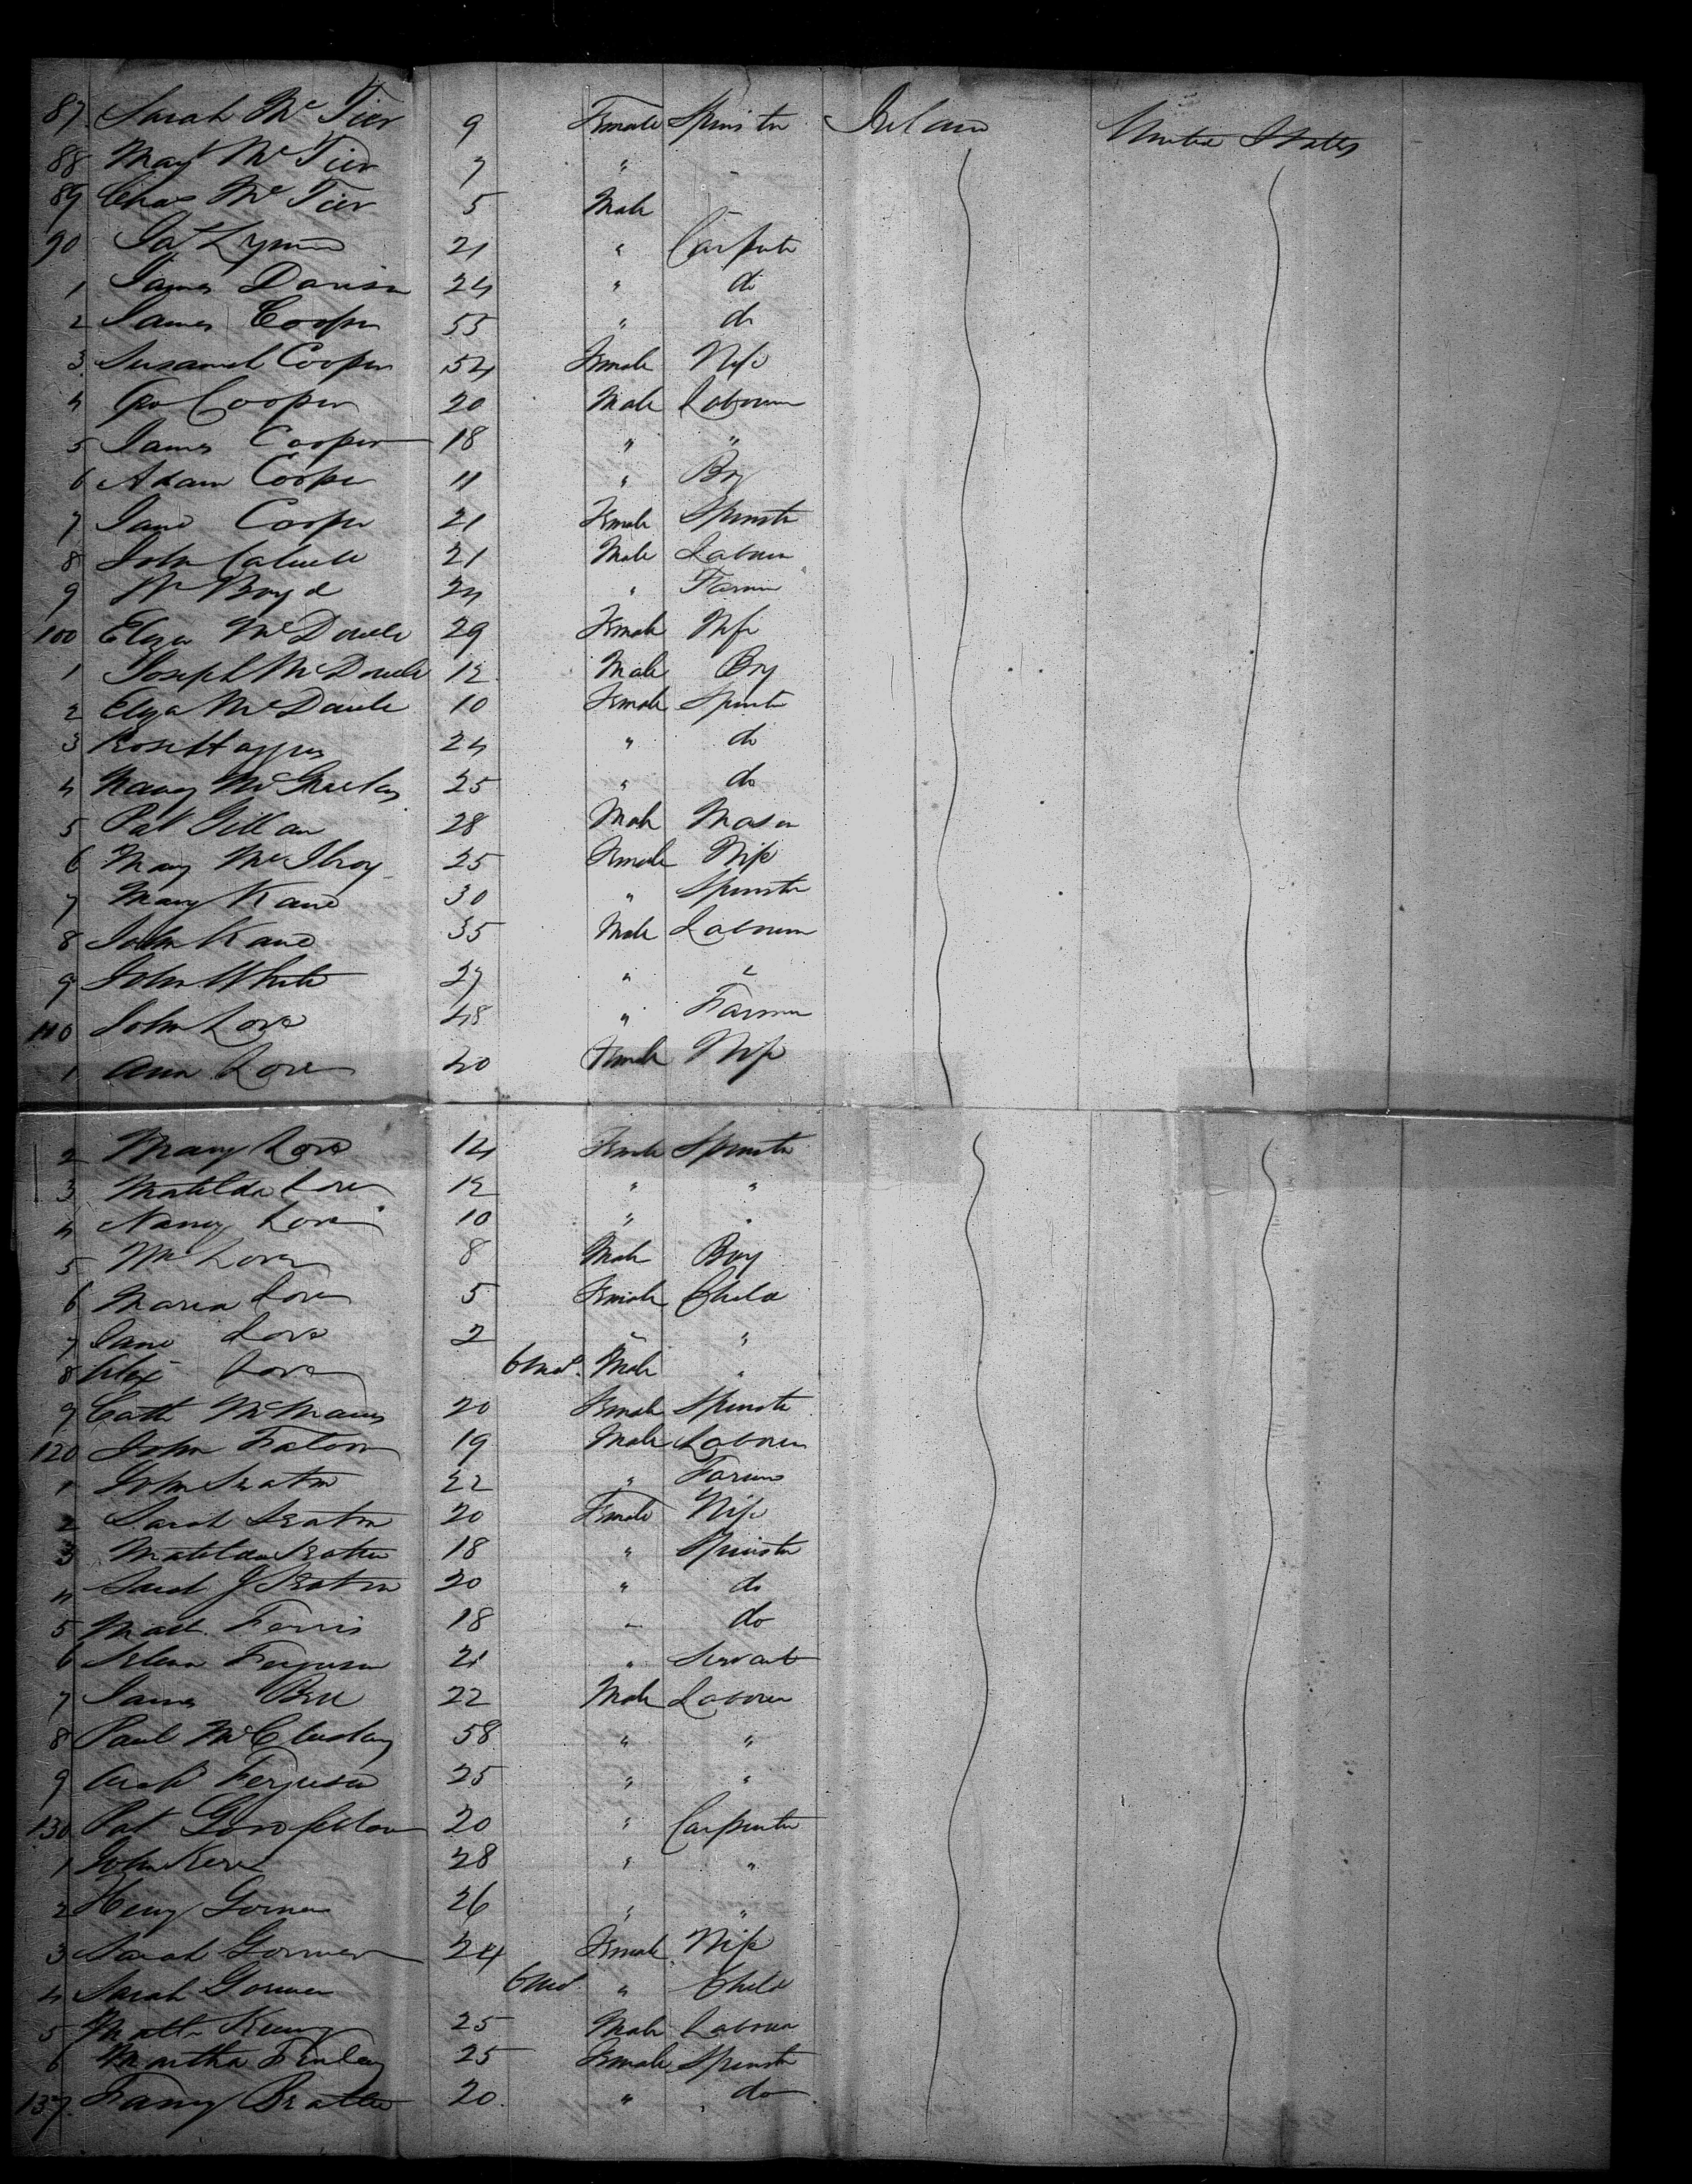 87 Sarah Mc Tier 9 Female Spinster Ireland United States
88 Mary Mc Tier 7 "
89 Chas Mc Tier 5 Male
90 Jas Lynn 21 " Carpenter
1 James Davison 24 " do
2 James Cooper 55 " do
3 Susanah Cooper 54 Female Wife
4 Geo Cooper 20 Male Labourer
5 James Cooper 18 " "
6 Adam Cooper 11 " Boy
7 Jane Cooper 21 Female Spinster
8 John 21 Male Labourer
9 Wm Boyd 24 " Farmer
100 Eliza McDowell 29 Female Wife
1 Joseph McDowell 12 Male Boy
2 Eliza McDowell 10 Female Spinster
3 Rose 24 " do
4 Nancy 25 " do
5 Pat Gillan 28 Male Mason
6 Mary McIlroy 25 Female Wife
7 Mary Kane 30 " Spinster
8 John Kane 35 Male Labourer
9 John White 27 " "
110 John Love 48 " Farmer
1 Ann Love 40 Female Wife
2 Mary Love 14 Female Spinster
3 Matilda Love 12 " "
4 Nancy Love 10 " "
5 Wm Love 8 Male Boy
6 Maria Love 5 Female Child
7 Jane Love 2 " "
8 Alex Love 6 Mos. Male "
9 Cath McManus 20 Female Spinster
120 John 19 Male Labourer
1 John Seaton 22 " Farmer
2 Sarah Seaton 20 Female Wife
3 Matilda Seaton 18 " Spinster
4 Sarah J Seaton 20 " do
5 Matt. Ferris 18 " do
6 Ferguson 21 " Servant
7 James Bell 22 Male Labourer
8 Paul McCluskey 58 " "
9 Arch Ferguson 25 " "
130 Pat 20 " Carpenter
1 John Kerr 28 " "
2 Henry Gorman 26 " "
3 Sarah Gorman 24 Female Wife
4 Sarah Gorman 6 Mos. " Child
5 Matt 25 Male Labourer
6 Martha Finlay 25 Female Spinster
137 Fanny 20 " do